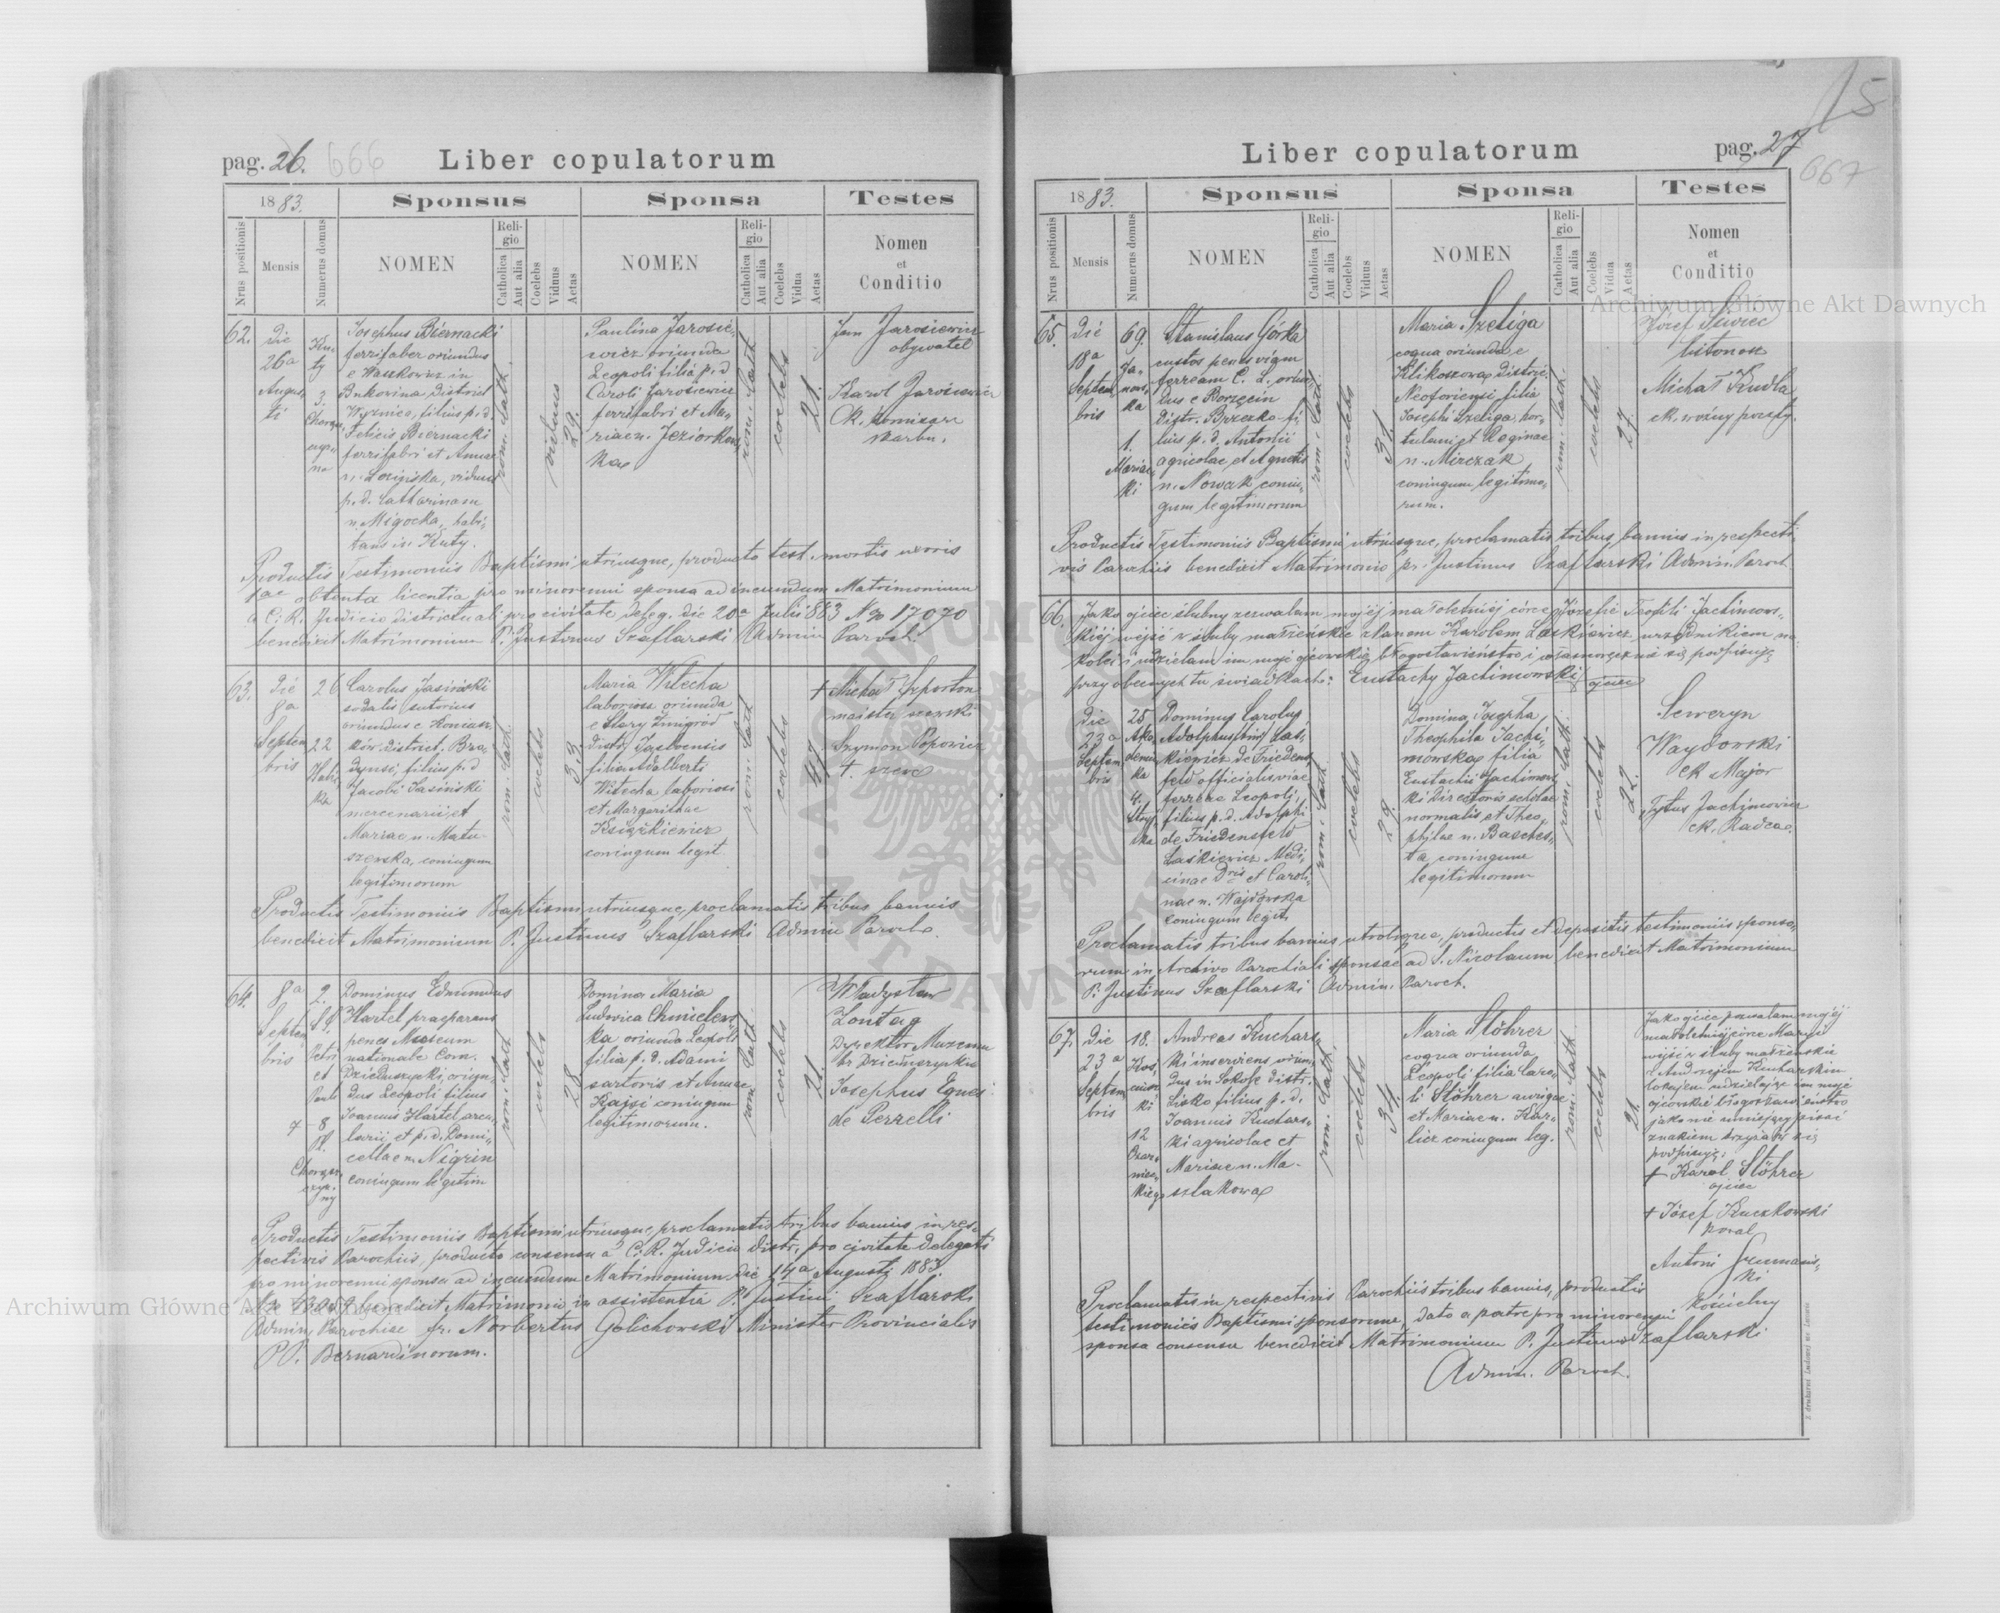 pag. 26. 666
Liber copulatorum
1883.
Sponsus
Sponsa
Testes
Nrus positionis
Mensis
Numerus domus
NOMEN
Religio
Catholica
Aut alia
Coelebs
Viduus
Aetas
NOMEN
Religio
Catholica
Aut alia
Coelebs
Vidua
Aetas
Nomen
et
Conditio
62.
die
26a
Augus
ti
Ku
ty
3
Josephus Biernacki
ferrifaber oriundus
e Waszkowiez in
Bukovina district
Wyznice, filius p. d.
Felicis Biernacki
ferrifabri et Annae
n. Łozińska, viduus
p. d. Catharinam
n. Migocka, habi-
tans in Kuty.
rom. cath.
viduus
29.
Paulina Jarosie-
wicz oriunda
Leopoli filia p. d
Caroli Jarosiewicz
ferrifabri et Ma-
riae n. Jeziorkow
ka
rom. cath
coelebs
21.
Jan Jarosiewicz
obywatel
Karol Jarosiewicz
Ck. komisarz
skarbu.
Productis Testimoniis Baptismi utriusque, producto test. mortis uxoris
obtenta licentia pro minorenni sponsa ad ineundum Matrimonium
a C. R. Judicio districtuali pro civitate deleg. die 20a Julii 883 No 17070
benedicit Matrimonium P. Justinus Szaflarski Admin Paroch.
63.
Die
8a
Septem
bris
26
22
Carolus Jasiński
sodalis sutorius
oriundus e Koniusz
ków. district. Bro-
dynsi, filius p. d
Jacobi Jasiński
mercenarii et
Mariae n. Matu-
szewska, coniugum
legitimorum
rom. cath.
coelebs
33.
Maria Witecha
laboriosa oriunda
e Stary Żmigród
distr. Jasloensis
filia Adalberti
Witecha laboriosi
et Margarithae
Książkiewicz
coniugum legit.
rom. cath
coelebs
47.
+ Michał
majster szewski
Szymon Popowicz
+. szewc
Productis Testimoniis Baptismi utriusque, proclamatis tribus bannis
benedicit Matrimonium P. Justinus Szaflarski Admin Paroch.
64.
8a
Septem
bris
2.
Sś.
Petri
et
Pauli
8
Pl.
Dominus Edmundus
Hartel praeparans
penes Museum
nationale Com.
Dzieduszycki, oriun-
dus Leopoli filius
Joannis Hartel
larii et p. d. Domi-
cellae n. Nigrin
coniugum legitim
rom. cath.
coelebs
28
Domina Maria
Ludovica Chmielews
ka oriunda Leopoli
filia p. d. Adami
sartoris et Annae
Kajsi coniugum
legitimorum.
rom. cath
coelebs
21.
Władysław
Zontag
Dyrektor Muzeum
hr Dzieduszyckich
Josephus Eques
de Perrelli
Productis Testimoniis Baptismi utriusque, proclamatis tribus bannis in res-
pectivis Parochiis, producto consensu a C. R. Judicio distr. pro civitate delegato
pro minorenni sponsa ad ineundum Matrimonium die 14a Augusti 1883.
benedicit Matrimonio in assistentia P. Justini Szaflarski
Admin. Parochiae fr. Norbertus Golichowski Minister Provincialis
PP. Bernardinorum.
15
Liber copulatorum
pag. 27
667
1883.
Sponsus
Sponsa
Testes
Nrus positionis
Mensis
Numerus domus
NOMEN
Religio
Catholica
Aut alia
Coelebs
Viduus
Aetas
NOMEN
Religio
Catholica
Aut alia
Coelebs
Vidua
Aetas
Nomen
et
Conditio
65.
die
18a
Septem
bris
69.
Ja-
nows-
ka
1.
Mariac-
ki
Stanislaus Górka
custos penes viam
ferream C. L. oriun-
dus e Borzęcin
distr. Brzesko fi-
lius p. d. Antonii
agricolae et Agnetis
n. Nowak coniu-
gum legitimorum
rom. cath.
coelebs
31.
Maria Szeliga
coqua oriunda e
Klikoszowa distric.
Neoforiensi filia
Josephi Szeliga hor-
tulani et Reginae
n. Mirczak
coniugum legitimo-
rum.
rom. cath
coelebs
27.
Józef Szwiec
listonosz
Michał Kudła
ck. woźny poczty.
Productis Testimoniis Baptismi utriusque, proclamatis tribus bannis in respecti-
vis Parochiis benedicit Matrimonio pr. Justinus Szaflarski Admin. Paroch
66.
Jako ojciec ślubny zezwalam mojej małoletniej córce Józefie Teofili Jachimows-
kiej wejść w śluby małżeńskie z Panem Karolem Laskiewicz urzędnikiem na
kolei i udzielam im moje ojcowskie błogosławieństwo i własnoręcznie się podpisuję
przy obecnych tu świadkach: Eustachy Jachimowski ojciec
Die
23a
Septem
bris
25.
Aka
demic
ka
4.
Dominus Carolus
Adolphus Las-
kiewicz de Friedens
feld officialis viae
ferreae Leopoli,
filius p. d. Adolphi
de Friedensfeld
Laskiewicz Medi-
cinae Dris et Caroli-
nae n. Wajdowska
coniugum legit.
rom. cath
coelebs
29.
Domina Josepha
Theophila Jachi-
mowska filia
Eustachii Jachimows
ki Directoris scholae
normalis et Theo-
philae n. Basches-
ta coniugum
legitimorum
rom. cath.
coelebs
22.
Seweryn
Waydowski
ck Major
Tytus Jachimowicz
ck. Radca
Proclamatis tribus bannis utrobique, productis et depositis testimoniis sponso-
rum in Archivo Parochiali sponsae ad S. Nicolaum benedicit Matrimonium
P. Justinus Szaflarski Admin. Paroch.
67.
Die
23a
Septem
bris
18.
12
Czar-
niec-
kiego
Andreas Kuchars-
ki inserviens oriun-
dus in Sokole distr.
Lisko filius p. d.
Joannis Kuchars-
ki agricolae et
Mariae n. Ma-
szlakowa
rom. cath.
coelebs
34.
Maria Stöhrer
coqua oriunda
Leopoli filia Caro-
li Stöhrer aurigae
et Mariae n. Kar-
licz coniugum leg.
rom. cath.
coelebs
21.
Jako ojciec pozwalam mojej
małoletniej córce Maryi
wejść w śluby małżeńskie
z Andrzejem Kucharskim
lokajem udzielając im moje
ojcowskie błogosławieństwo
jako nie umiejący pisać
znakiem krzyża się
podpisuję.
+ Karol Stöhrer
ojciec
+ Józef Kuczkowski
kowal
Antoni Szumańs-
ki
kościelny
Proclamatis in respectivis Parochiis tribus bannis, productis
testimoniis Baptismi sponsorum, dato a patre pro minorenni
sponsa consensu benedicit Matrimonium P. Justinus Szaflarski
Admin. Paroch.
Archiwum Główne Akt Dawnych
Archiwum Główne Akt Dawnych